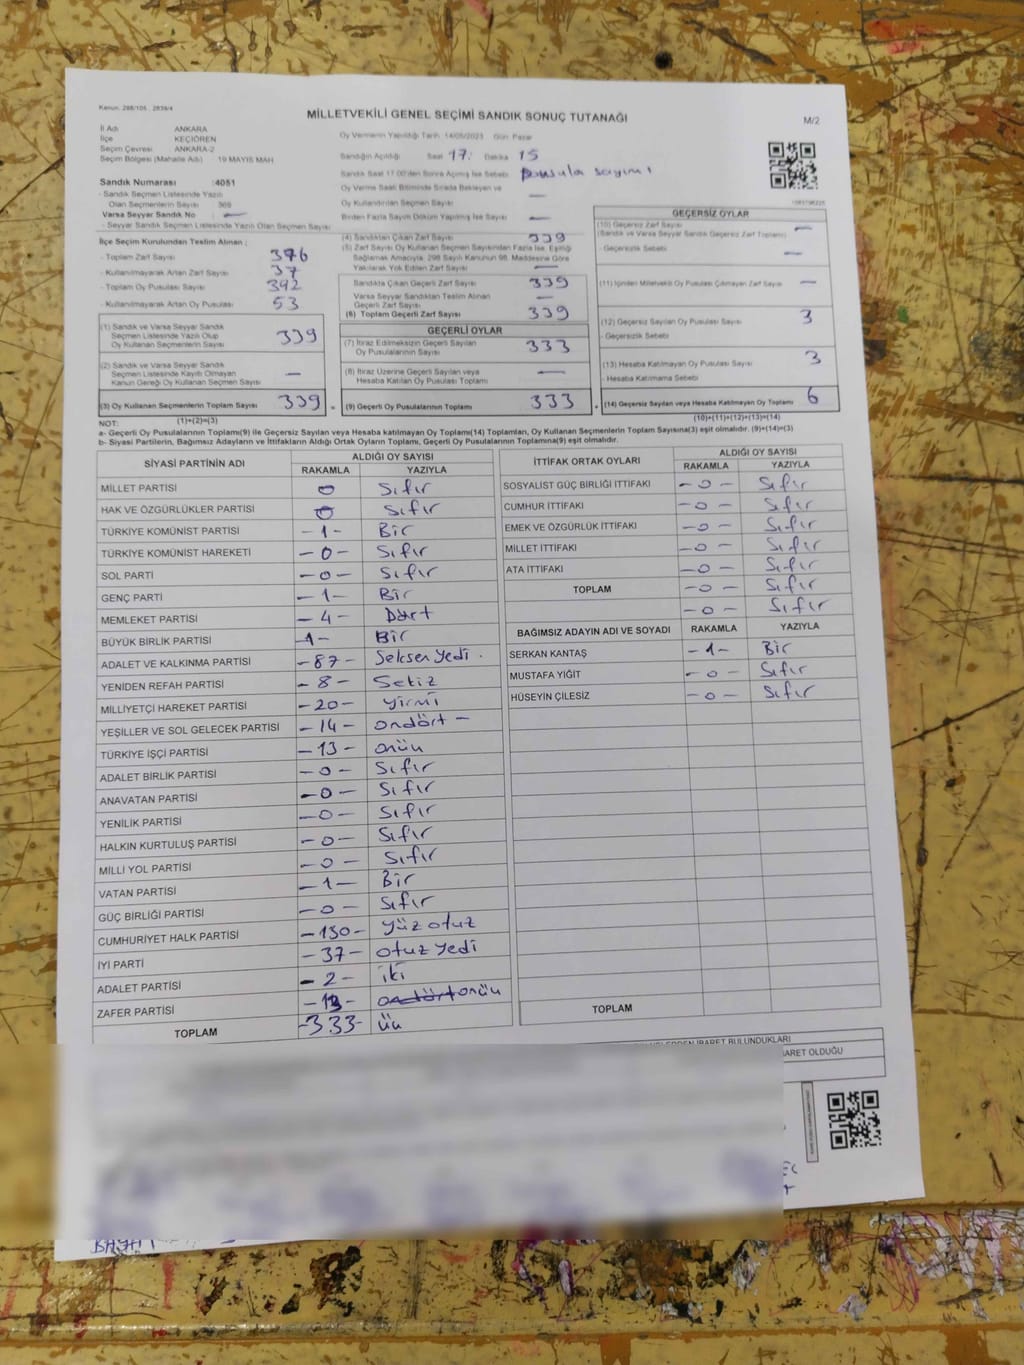 Kanun: 298/105 , 2839/4
MİLLETVEKİLİ GENEL SEÇİMİ SANDIK SONUÇ TUTANAĞI
M/2
İl Adı ANKARA
İlçe KEÇİÖREN
Seçim Çevresi ANKARA-2
Seçim Bölgesi (Mahalle Adı) : 19 MAYIS MAH
Oy Vermenin Yapıldığı Tarih :14/05/2023 Gün: Pazar
Sandığın Açıldığı Saat 17: Dakika 15
Sandık Saat 17.00'den Sonra Açılmış İse Sebebi: pusula sayımı
Oy Verme Saati Bitiminde Sırada Bekleyen ve
Oy Kullandırılan Seçmen Sayısı —
Birden Fazla Sayım Döküm Yapılmış İse Sayısı —
Sandık Numarası :4051
- Sandık Seçmen Listesinde Yazılı
Olan Seçmenlerin Sayısı 369
Varsa Seyyar Sandık No —
- Seyyar Seçmen Listesinde Yazılı Olan Seçmen Sayısı
İlçe Seçim Kurulundan Teslim Alınan ;
- Toplam Zarf Sayısı 376
- Kullanılmayarak Artan Zarf Sayısı 37
- Toplam Oy Pusulası Sayısı 392
- Kullanılmayarak Artan Oy Pusulası 53
(1) Sandık ve Varsa Seyyar Sandık
Seçmen Listesinde Yazılı Olup
Oy Kullanan Seçmenlerin Sayısı 339
(2) Sandık ve Varsa Seyyar Sandık
Seçmen Listesinde Kayıtlı Olmayan
Kanun Gereği Oy Kullanan Seçmen Sayısı —
(3) Oy Kullanan Seçmenlerin Toplam Sayısı 339
(1)+(2)=(3)
(4) Sandıktan Çıkan Zarf Sayısı 339
(5) Zarf Sayısı Oy Kullanan Seçmen Sayısından Fazla İse, Eşitliği
Sağlamak Amacıyla, 298 Sayılı Kanunun 98. Maddesine Göre
Yakılarak Yok Edilen Zarf Sayısı —
Sandıkta Çıkan Geçerli Zarf Sayısı 339
Varsa Seyyar Sandıktan Teslim Alınan
Geçerli Zarf Sayısı —
(6) Toplam Geçerli Zarf Sayısı 339
GEÇERLİ OYLAR
(7) İtiraz Edilmeksizin Geçerli Sayılan
Oy Pusulalarının Sayısı 333
(8) İtiraz Üzerine Geçerli Sayılan veya
Hesaba Katılan Oy Pusulası Toplamı —
(9) Geçerli Oy Pusulalarının Toplamı 333
GEÇERSİZ OYLAR
(10) Geçersiz Zarf Sayısı
(Sandık ve Varsa Seyyar Sandık Geçersiz Zarf Toplamı) —
- Geçersizlik Sebebi —
(11) İçinden Milletvekili Oy Pusulası Çıkmayan Zarf Sayısı —
(12) Geçersiz Sayılan Oy Pusulası Sayısı 3
- Geçersizlik Sebebi
(13) Hesaba Katılmayan Oy Pusulası Sayısı 3
- Hesaba Katılmama Sebebi
(14) Geçersiz Sayılan veya Hesaba Katılmayan Oy Toplamı 6
(10)+(11)+(12)+(13)=(14)
NOT:
a- Geçerli Oy Pusulalarının Toplamı(9) ile Geçersiz Sayılan veya Hesaba Katılmayan Oy Toplamı(14) Toplamları, Oy Kullanan Seçmenlerin Toplam Sayısına(3) eşit olmalıdır. (9)+(14)=(3)
b- Siyasi Partilerin, Bağımsız Adayların ve İttifakların Aldığı Ortak Oyların Toplamı, Geçerli Oy Pusulalarının Toplamına(9) eşit olmalıdır.
SİYASİ PARTİNİN ADI ALDIĞI OY SAYISI
RAKAMLA YAZIYLA
MİLLET PARTİSİ 0 Sıfır
HAK VE ÖZGÜRLÜKLER PARTİSİ 0 Sıfır
TÜRKİYE KOMÜNİST PARTİSİ -1- Bir
TÜRKİYE KOMÜNİST HAREKETİ -0- Sıfır
SOL PARTİ -0- Sıfır
GENÇ PARTİ -1- Bir
MEMLEKET PARTİSİ -4- Dört
BÜYÜK BİRLİK PARTİSİ -1- Bir
ADALET VE KALKINMA PARTİSİ -87- Seksen yedi.
YENİDEN REFAH PARTİSİ -8- Sekiz
MİLLİYETÇİ HAREKET PARTİSİ -20- yirmi
YEŞİLLER VE SOL GELECEK PARTİSİ -14- ondört -
TÜRKİYE İŞÇİ PARTİSİ -13- onüü
ADALET BİRLİK PARTİSİ -0- Sıfır
ANAVATAN PARTİSİ -0- Sıfır
YENİLİK PARTİSİ -0- Sıfır
HALKIN KURTULUŞ PARTİSİ -0- Sıfır
MİLLİ YOL PARTİSİ -0- Sıfır
VATAN PARTİSİ -1- Bir
GÜÇ BİRLİĞİ PARTİSİ -0- Sıfır
CUMHURİYET HALK PARTİSİ -130- yüz otuz
İYİ PARTİ -37- otuz yedi
ADALET PARTİSİ -2- iki
ZAFER PARTİSİ -13- ondört onüü
TOPLAM -333- üü
İTTİFAK ORTAK OYLARI ALDIĞI OY SAYISI
RAKAMLA YAZIYLA
SOSYALİST GÜÇ BİRLİĞİ İTTİFAKI -0- Sıfır
CUMHUR İTTİFAKI -0- Sıfır
EMEK VE ÖZGÜRLÜK İTTİFAKI -0- Sıfır
MİLLET İTTİFAKI -0- Sıfır
ATA İTTİFAKI -0- Sıfır
TOPLAM -0- Sıfır
-0- Sıfır
BAĞIMSIZ ADAYIN ADI VE SOYADI RAKAMLA YAZIYLA
SERKAN KANTAŞ -1- Bir
MUSTAFA YİĞİT -0- Sıfır
HÜSEYİN ÇİLESİZ -0- Sıfır
TOPLAM
İBARET BULUNDUKLARI
İBARET OLDUĞU